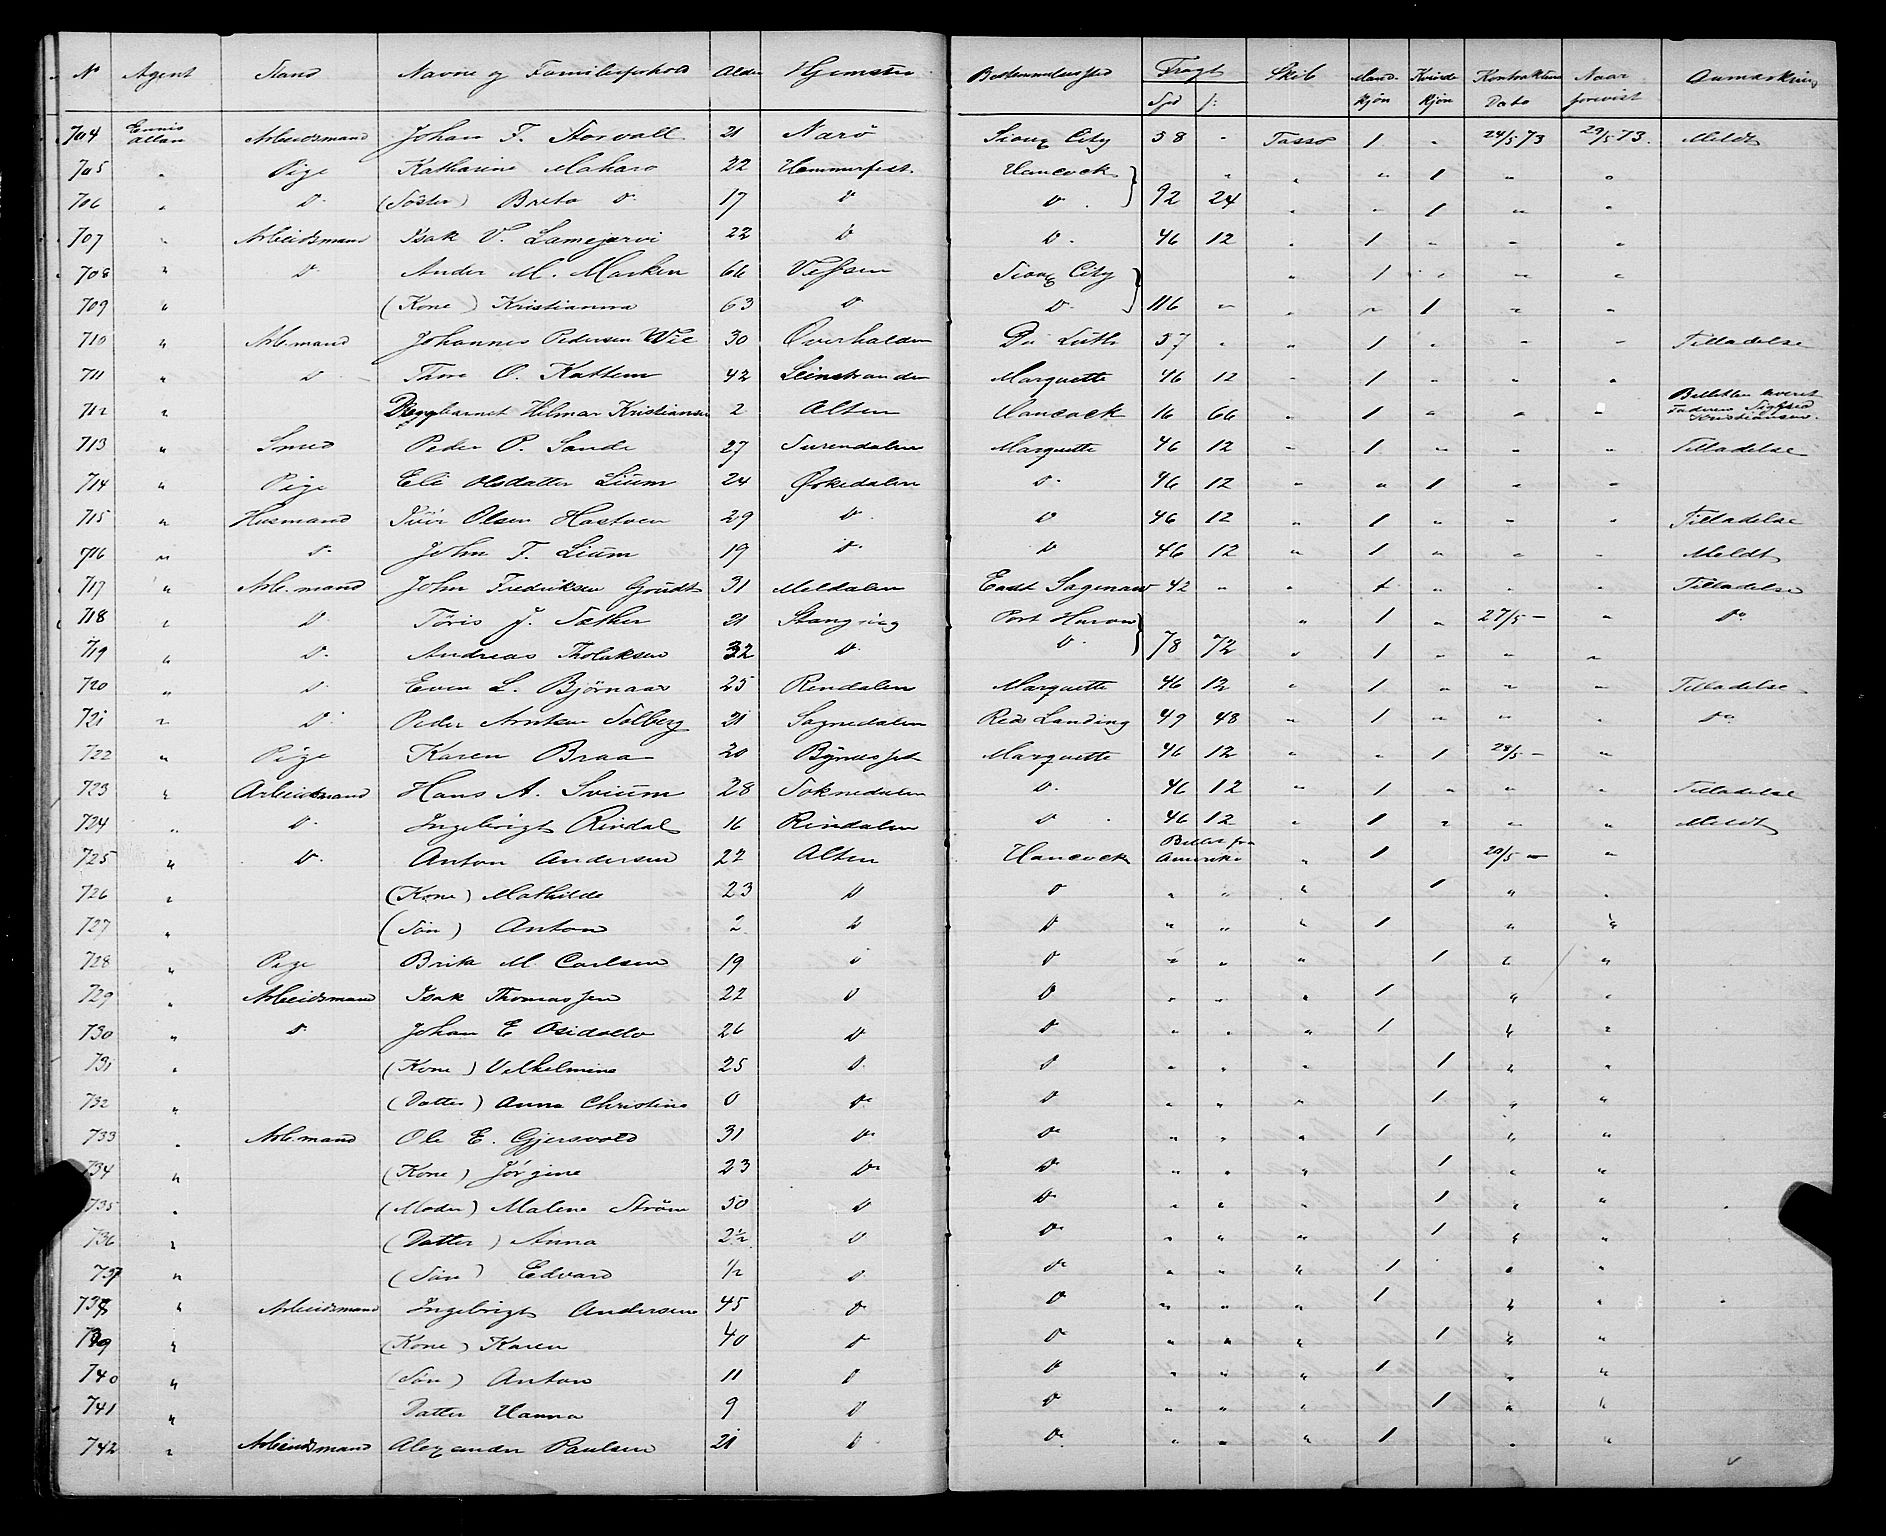 No Agent Stand Navne og Familieforhold Alder Hjemsted Bestemmelsessted Fragt Skib Mand. Kvinde Kontraktens Naar Anmærkning
Spd /: kjøn kjøn Dato forevist
704 Ennis Allan Arbeidsmand Johan F. Storvall 21 Narö Sioux City 58 - Tasso 1 " 24/5 73 29/5 73. Meldt
705 " Pige Katharine Maharo 22 Hammerfest. Hancock " " " 1 " "
706 " D. (Söster) Breta D. 17 D D. 92 24 " " 1 " "
707 " Arbeidsmand Isak V. Lamejarvi 22 D D. 46 12 " 1 " " "
708 " D. Ander M. Marken 66 Vefsen Sioux City " 1 " " "
709 " (Kone) Kristianna 63 D D. 116 " " " 1 " "
710 " Arb.mand Johannes Pedersen Wie 30 Overhalden Du Luth 57 " " 1 " " " Tilladelse
711 " D Thore O. Kattem 42 Leinstranden Marquette 46 12 " 1 " " "
712 " Plejebarnet Hilmar Kristiansen 2 Alten Hancock 16 66 " 1 " " " Billetten
Faderen Kristiansen.
713 " Smed Peder P. Sande 27 Surendalen Marquette 46 12 " 1 " " " Tilladelse
714 " Pige Eli Olsdatter Lium 24 Ørkedalen D. 46 12 " " 1 " "
715 " Husmand Iver Olsen Hostven 29 D. D 46 12 " 1 " " " Tilladelse
716 " D. John F. Lium 19 D. D 46 12 " 1 " " " Meldt
717 " Arb.mand John Fredriksen Grudt 31 Meldalen East Sagenaw 42 " " 1 " " " Tilladelse
718 " D. Töris J. Sæther 21 Stangvig Port Huron " 1 " 27/5 - " D.
719 " D. Andreas Tholaksen 32 D. D. 78 72 " 1 " " "
720 " D. Even L. Björnaas 25 Rindalen Marquette 46 12 " 1 " " " Tilladelse
721 " D. Peder Arntsen Solberg 21 Sognedalen Reds Landing 49 48 " 1 " " " D.
722 " Pige Karen Braa 20 Bynesset Marquette 46 12 " " 1 28/5 - "
723 " Arbeidsmand Hans A. Svium 28 Soknedalen D. 46 12 " 1 " " " Tilladelse
724 " D. Ingebrigt Rindal 16 Rindalen D 46 12 " 1 " " " Meldt
725 " D. Anton Andersen 22 Alten Hancock Billet fra Amerika " 1 29/5 - "
726 " (Kone) Mathilde 23 D D " " " 1 " "
727 " (Sön) Anton D D " " " 1 " "
728 " Pige Brita M. Carlsen 19 D D " " " 1 " "
729 " Arbeidsmand Isak Thomassen 22 D D " " " 1 " "
730 " D. Johan E. Osidollo 26 D D " " " 1 " "
731 " (Kone) Vilhelmine 25 D D " " " 1 " "
732 " (Datter) Anna Christine 0 D D " " " 1 " "
733 " Arb.mand Ole E. Gjersvold 31 D. D. " " " 1 " "
734 " (Kone) Jörgine 23 D. D. " " " 1 " "
735 " (Moder) Malene Ström 50 D D. " " " 1 " "
736 " (Datter) Anna 2½ D D. " " " 1 " "
737 " (Sön) Edvard ½ D D. " " " 1 " "
738 " Arbeidsmand Ingebrigt Andersen 45 D. D " " " 1 " "
739 " (Kone) Karen 40 D D. " " " 1 " "
740 " (Sön) Anton 11 D D " " " 1 " "
741 " Datter Hanna 9 D D. " " " 1 " "
742 " Arbeidsmand Alexander Paulsen 21 D. D. " " " 1 " "